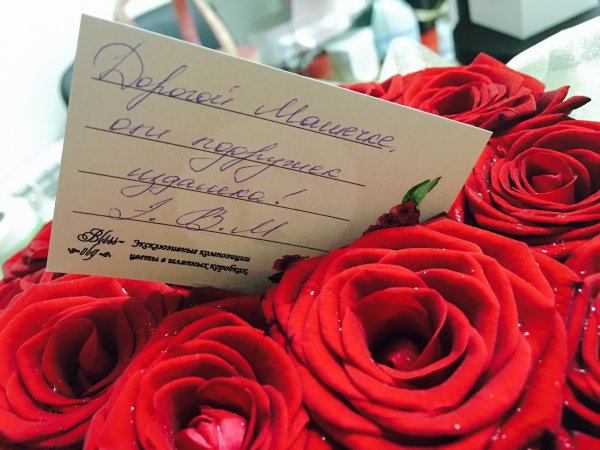 Дорогой Машечке,
от подружек
издалека!
J. В. М
Bliss-
Эксклюзивные композиции
цветы в шляпных коробках